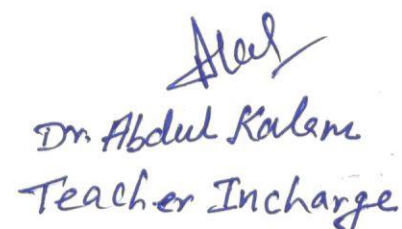 Dr. Abdul Kalam
Teacher Incharge